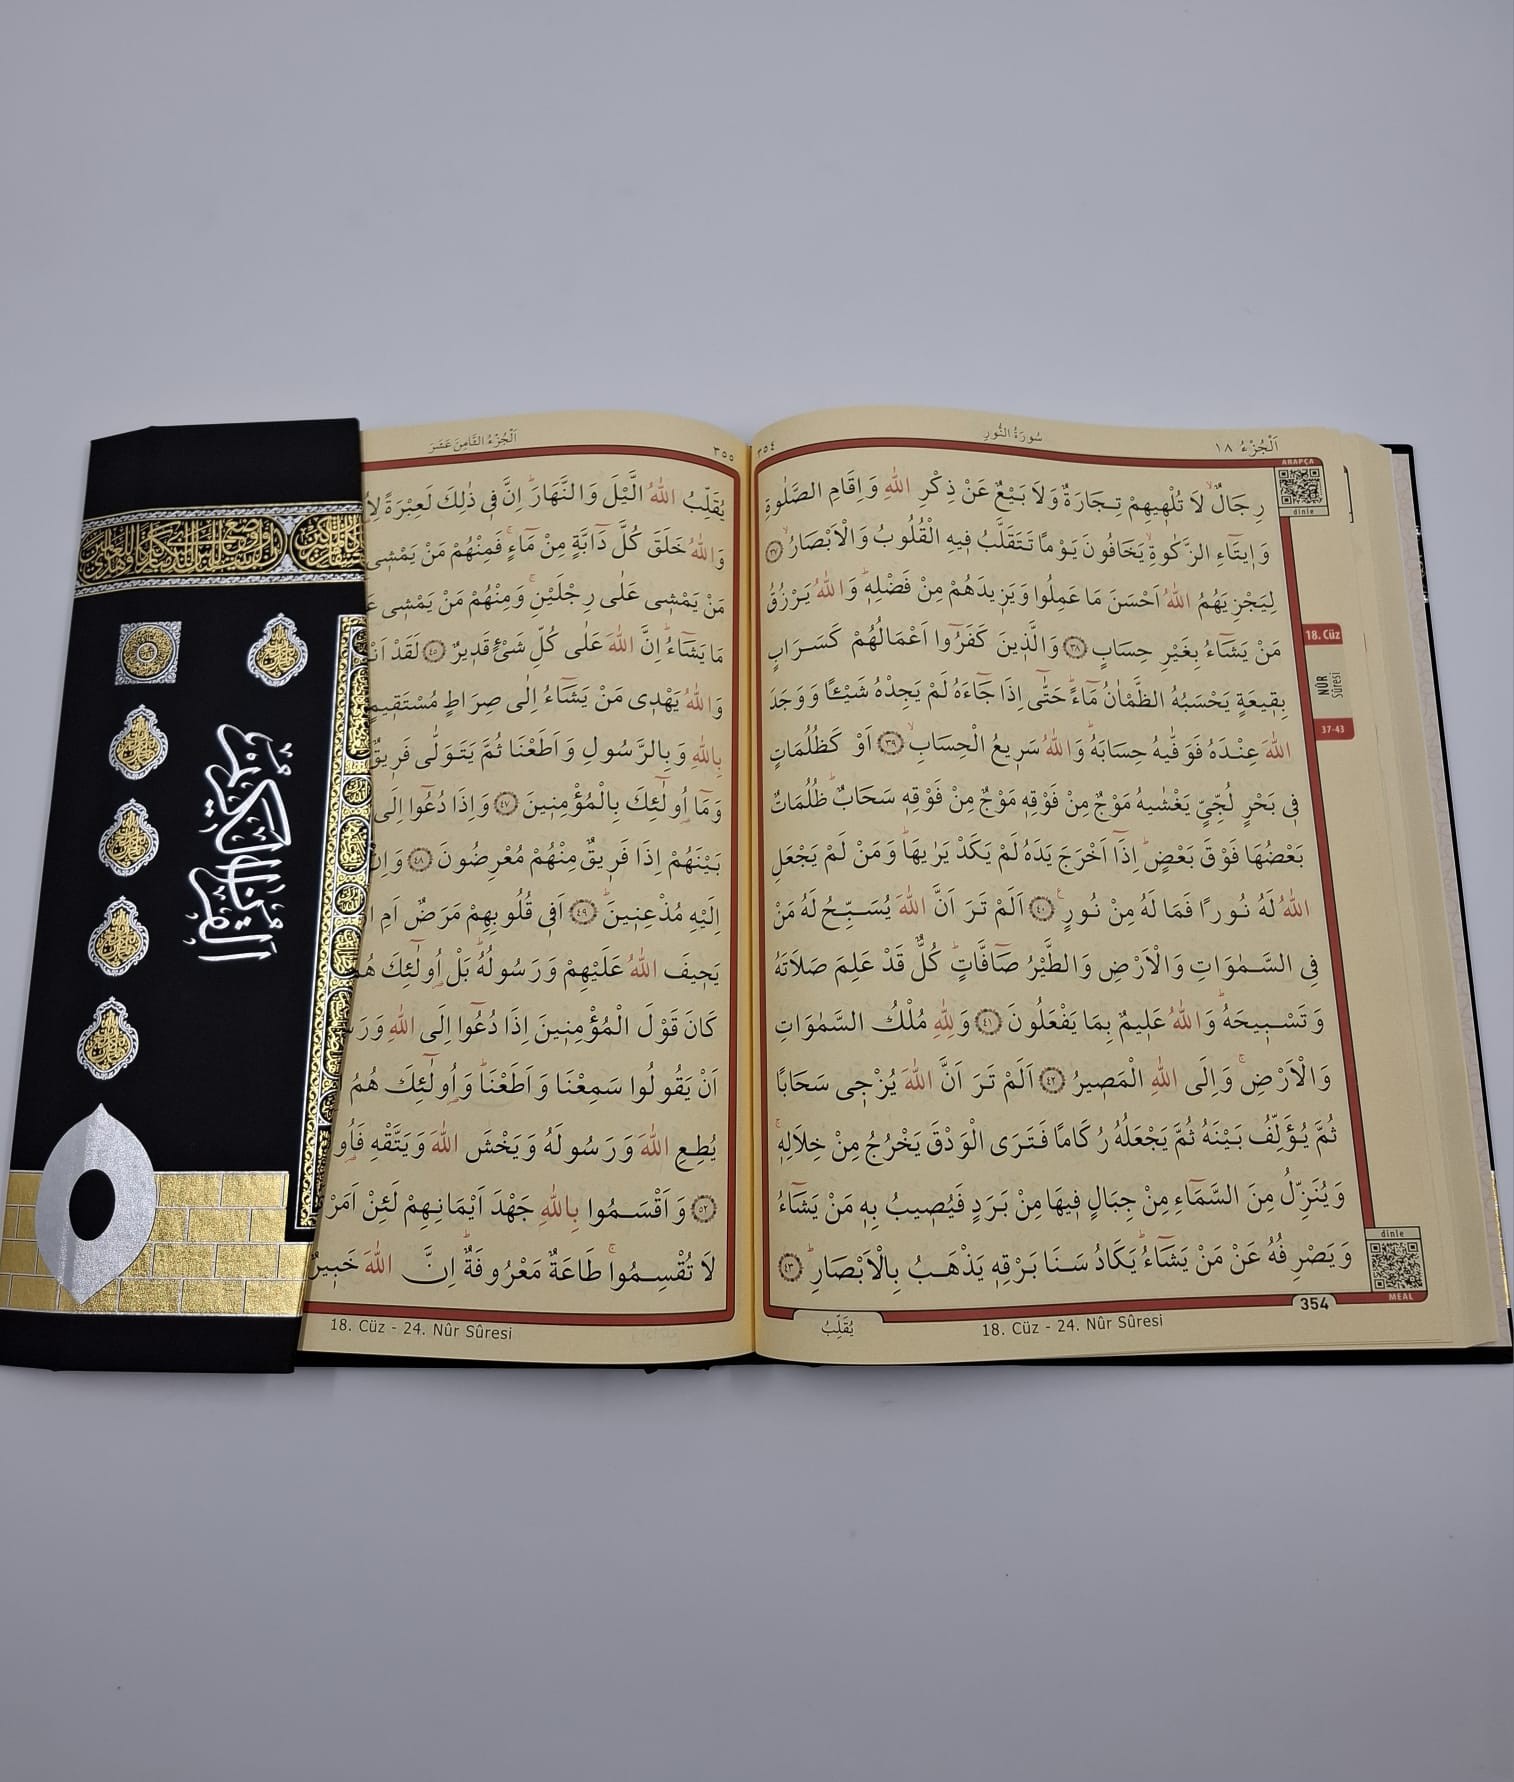 اَلْجُزْءُ ١٨
سُورَةُ النُّورِ
٣٥٤
رِجَالٌ لَا تُلْهِيهِمْ تِجَارَةٌ وَلَا بَيْعٌ عَنْ ذِكْرِ اللّٰهِ وَاِقَامِ الصَّلٰوةِ
وَاِيتَٓاءِ الزَّكٰوةِ يَخَافُونَ يَوْمًا تَتَقَلَّبُ فِيهِ الْقُلُوبُ وَالْاَبْصَارُ ٣٧
لِيَجْزِيَهُمُ اللّٰهُ اَحْسَنَ مَا عَمِلُوا وَيَزِيدَهُمْ مِنْ فَضْلِهِ وَاللّٰهُ يَرْزُقُ
مَنْ يَشَٓاءُ بِغَيْرِ حِسَابٍ ٣٨ وَالَّذِينَ كَفَرُٓوا اَعْمَالُهُمْ كَسَرَابٍ
بِقِيعَةٍ يَحْسَبُهُ الظَّمْاٰنُ مَٓاءً حَتّٰٓى اِذَا جَٓاءَهُ لَمْ يَجِدْهُ شَيْئًا وَوَجَدَ
اللّٰهَ عِنْدَهُ فَوَفّٰيهُ حِسَابَهُ وَاللّٰهُ سَرِيعُ الْحِسَابِ ٣٩ اَوْ كَظُلُمَاتٍ
فِى بَحْرٍ لُجِّىٍّ يَغْشٰيهُ مَوْجٌ مِنْ فَوْقِهِ مَوْجٌ مِنْ فَوْقِهِ سَحَابٌ ظُلُمَاتٌ
بَعْضُهَا فَوْقَ بَعْضٍ اِذَٓا اَخْرَجَ يَدَهُ لَمْ يَكَدْ يَرٰيهَا وَمَنْ لَمْ يَجْعَلِ
اللّٰهُ لَهُ نُورًا فَمَا لَهُ مِنْ نُورٍ ٤٠ اَلَمْ تَرَ اَنَّ اللّٰهَ يُسَبِّحُ لَهُ مَنْ
فِى السَّمٰوَاتِ وَالْاَرْضِ وَالطَّيْرُ صَٓافَّاتٍ كُلٌّ قَدْ عَلِمَ صَلَاتَهُ
وَتَسْبِيحَهُ وَاللّٰهُ عَلِيمٌ بِمَا يَفْعَلُونَ ٤١ وَلِلّٰهِ مُلْكُ السَّمٰوَاتِ
وَالْاَرْضِ وَاِلَى اللّٰهِ الْمَصِيرُ ٤٢ اَلَمْ تَرَ اَنَّ اللّٰهَ يُزْجِى سَحَابًا
ثُمَّ يُؤَلِّفُ بَيْنَهُ ثُمَّ يَجْعَلُهُ رُكَامًا فَتَرَى الْوَدْقَ يَخْرُجُ مِنْ خِلَالِهِ
وَيُنَزِّلُ مِنَ السَّمَٓاءِ مِنْ جِبَالٍ فِيهَا مِنْ بَرَدٍ فَيُصِيبُ بِهِ مَنْ يَشَٓاءُ
وَيَصْرِفُهُ عَنْ مَنْ يَشَٓاءُ يَكَادُ سَنَا بَرْقِهِ يَذْهَبُ بِالْاَبْصَارِ ٤٣
ARAPÇA
dinle
18. Cüz
NÛR
Sûresi
37-43
dinle
MEAL
354
18. Cüz - 24. Nûr Sûresi
يُقَلِّبُ
٣٥٥
اَلْجُزْءُ الثَّامِنَ عَشَرَ
يُقَلِّبُ اللّٰهُ الَّيْلَ وَالنَّهَارَ اِنَّ فِى ذٰلِكَ لَعِبْرَةً
وَاللّٰهُ خَلَقَ كُلَّ دَٓابَّةٍ مِنْ مَٓاءٍ فَمِنْهُمْ مَنْ يَمْشِى
مَنْ يَمْشِى عَلٰى رِجْلَيْنِ وَمِنْهُمْ مَنْ يَمْشِى
مَا يَشَٓاءُ اِنَّ اللّٰهَ عَلٰى كُلِّ شَىْءٍ قَدِيرٌ ٤٥ لَقَدْ
وَاللّٰهُ يَهْدِى مَنْ يَشَٓاءُ اِلٰى صِرَاطٍ مُسْتَقِيمٍ
بِاللّٰهِ وَبِالرَّسُولِ وَاَطَعْنَا ثُمَّ يَتَوَلّٰى فَرِيقٌ
وَمَٓا اُو۬لٰٓئِكَ بِالْمُؤْمِنِينَ ٤٧ وَاِذَا دُعُٓوا اِلَى
بَيْنَهُمْ اِذَا فَرِيقٌ مِنْهُمْ مُعْرِضُونَ ٤٨ وَاِنْ
اِلَيْهِ مُذْعِنِينَ ٤٩ اَفِى قُلُوبِهِمْ مَرَضٌ اَمِ
يَحِيفَ اللّٰهُ عَلَيْهِمْ وَرَسُولُهُ بَلْ اُو۬لٰٓئِكَ
كَانَ قَوْلَ الْمُؤْمِنِينَ اِذَا دُعُٓوا اِلَى اللّٰهِ
اَنْ يَقُولُوا سَمِعْنَا وَاَطَعْنَا وَاُو۬لٰٓئِكَ هُمُ
يُطِعِ اللّٰهَ وَرَسُولَهُ وَيَخْشَ اللّٰهَ وَيَتَّقْهِ
٥٢ وَاَقْسَمُوا بِاللّٰهِ جَهْدَ اَيْمَانِهِمْ لَئِنْ
لَا تُقْسِمُوا طَاعَةٌ مَعْرُوفَةٌ اِنَّ اللّٰهَ خَبِيرٌ
18. Cüz - 24. Nûr Sûresi